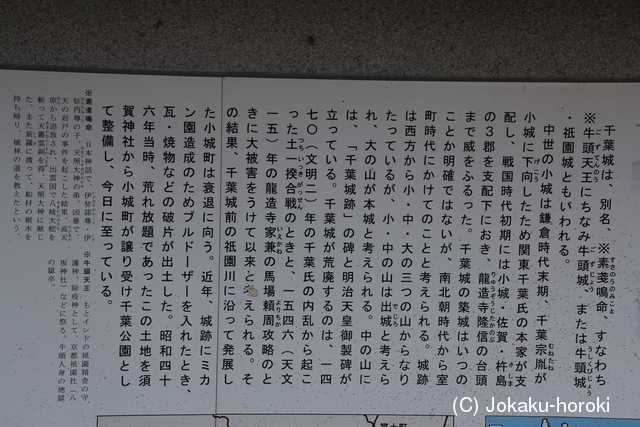 千葉城は、別名、※素戔嗚命、すなわち
※牛頭天王にちなみ牛頭城、または牛頸城
・祇園城ともいわれる。
中世の小城は鎌倉時代末期、千葉宗胤が
小城に下向したため関東千葉氏の本家が支
配し、戦国時代初期には小城・佐賀・杵島
の3郡を支配下におき、龍造寺隆信の台頭
まで威をふるった。千葉城の築城はいつの
ことか明確ではないが、南北朝時代から室
町時代にかけてのことと考えられる。城跡
は西方から小・中・大の三つの山からなり
たっているが、小・中の山は出城と考えら
れ、大の山が本城と考えられる。中の山に
は、「千葉城跡」の碑と明治天皇御製碑が
立っている。千葉城が荒廃するのは、一四
七〇(文明二)年の千葉氏の内乱から起こ
った土一揆合戦のときと、一五四六(天文
一五)年の龍造寺家兼の馬場頼周攻略のと
きに大被害をうけて以来と考えられる。そ
の結果、千葉城前の祇園川に沿って発展し
た小城町は衰退に向う。近年、城跡にミカ
ン園造成のためブルドーザーを入れたとき、
瓦・焼物などの破片が出土した。昭和四十
六年当時、荒れ放題であったこの土地を須
賀神社から小城町が譲り受け千葉公園とし
て整備し、今日に至っている。
※素戔嗚命 日本神話で、伊弉諾尊・伊
弉冉尊の子。天照大神の弟。凶暴で、
天の岩戸の事件を起こした結果、高天
原から追放され、出雲国で八岐大蛇を
斬って天叢雲剣を得、天照大神に献じ
た。また新羅に渡って、船材の樹木を
持ち帰り、植林の道を教えたという。
※牛頭天王 もとインドの祇園精舎の守
護神。除疫神として、京都祇園社(八
坂神社)などに祭る。牛頭人身の地獄
の獄卒。
富士町
(C) Jokaku-horoki